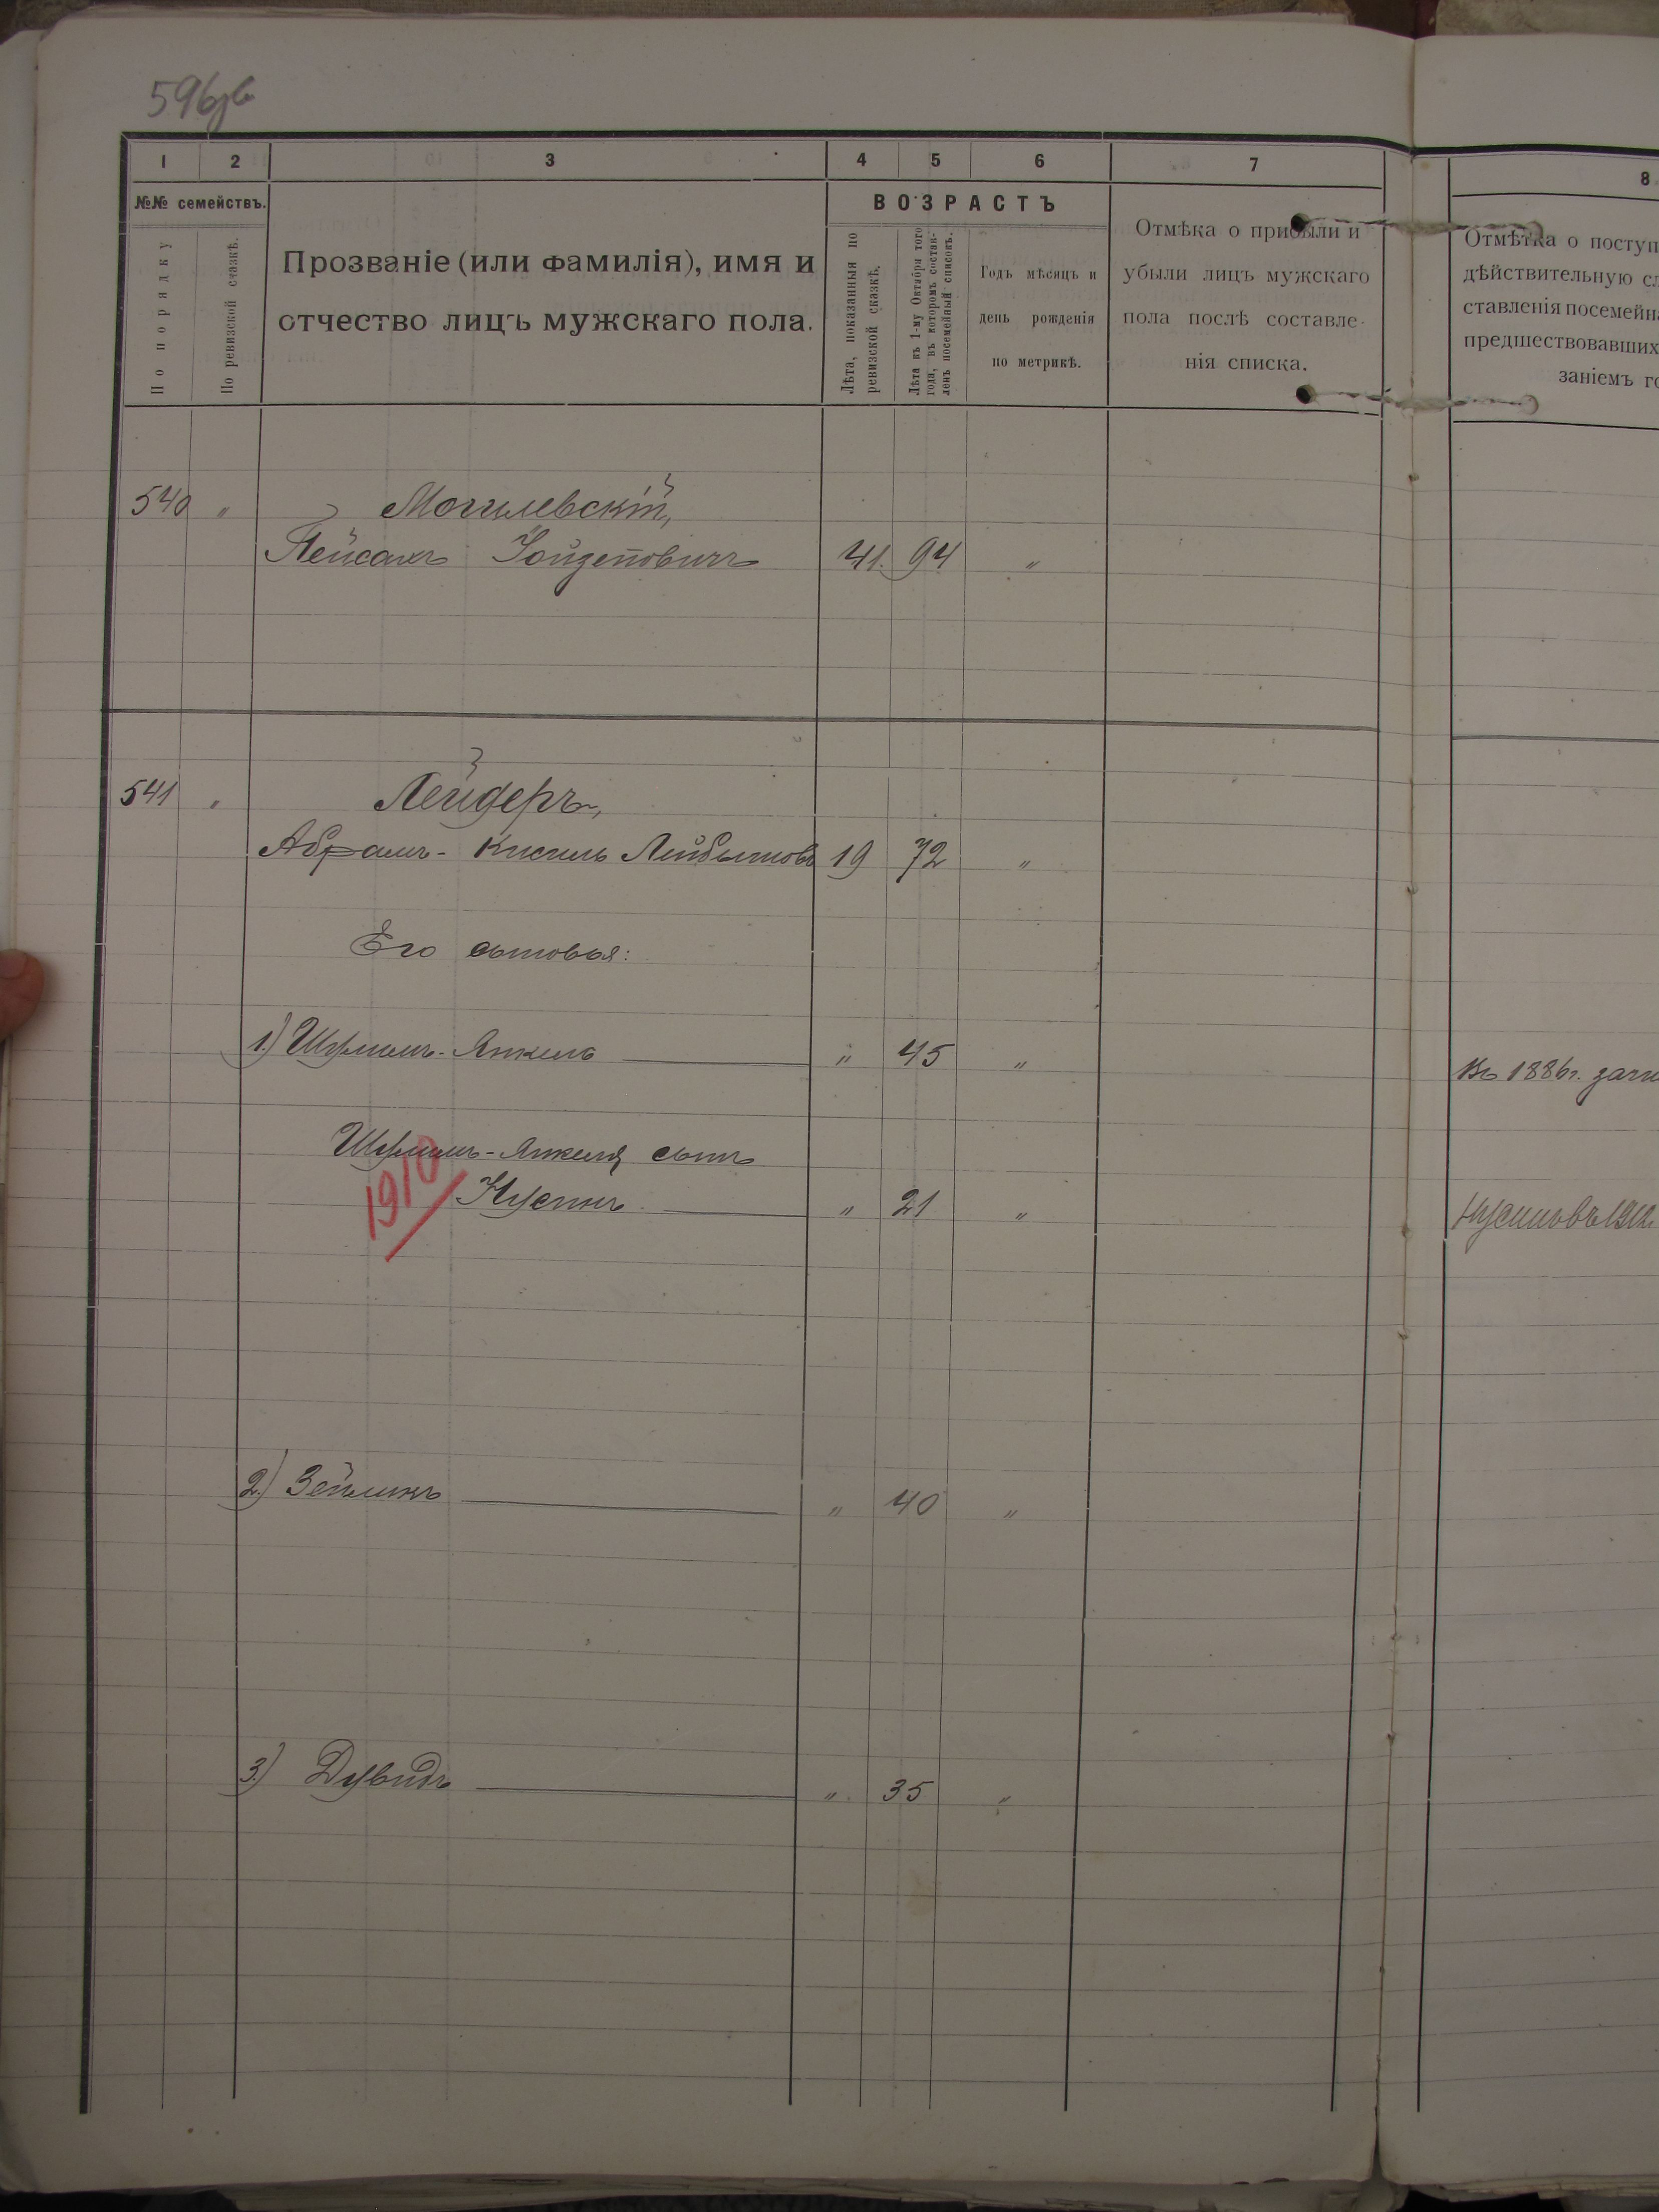 596об
1 2 3 4 5 6 7
№№ семействъ.
По порядку
По ревизской сказкѣ.
Прозваніе (или фамилія), имя и
отчество лицъ мужскаго пола.
ВОЗРАСТЪ
Лѣта, показанныя по
ревизской сказкѣ.
Лѣта къ 1-му Октября того
года, въ которомъ состав-
ленъ посемейный списокъ.
Годъ мѣсяцъ и
день рожденія
по метрикѣ.
Отмѣка о прибыли и
убыли лицъ мужскаго
пола послѣ составле-
нія списка.
8
Отмѣтка о поступ
дѣйствительную сл
ставленія посемейн
предшествовавших
заніемъ го
540 "
Могилевскій,
Пейсахъ 41. 94 "
541 "
Лейдеръ,
Абрамъ-Кисиль Лейбышовъ 19 72 "
Его сыновья:
1.) Шулимъ-Янкель " 45 "
Въ 1886г. зачи
Шулимъ-Янкеля сынъ
1910
Нусинъ " 21 "
Нусинъ въ 1910
2.) Зейликъ " 40 "
3.) Дувидъ " 35 "